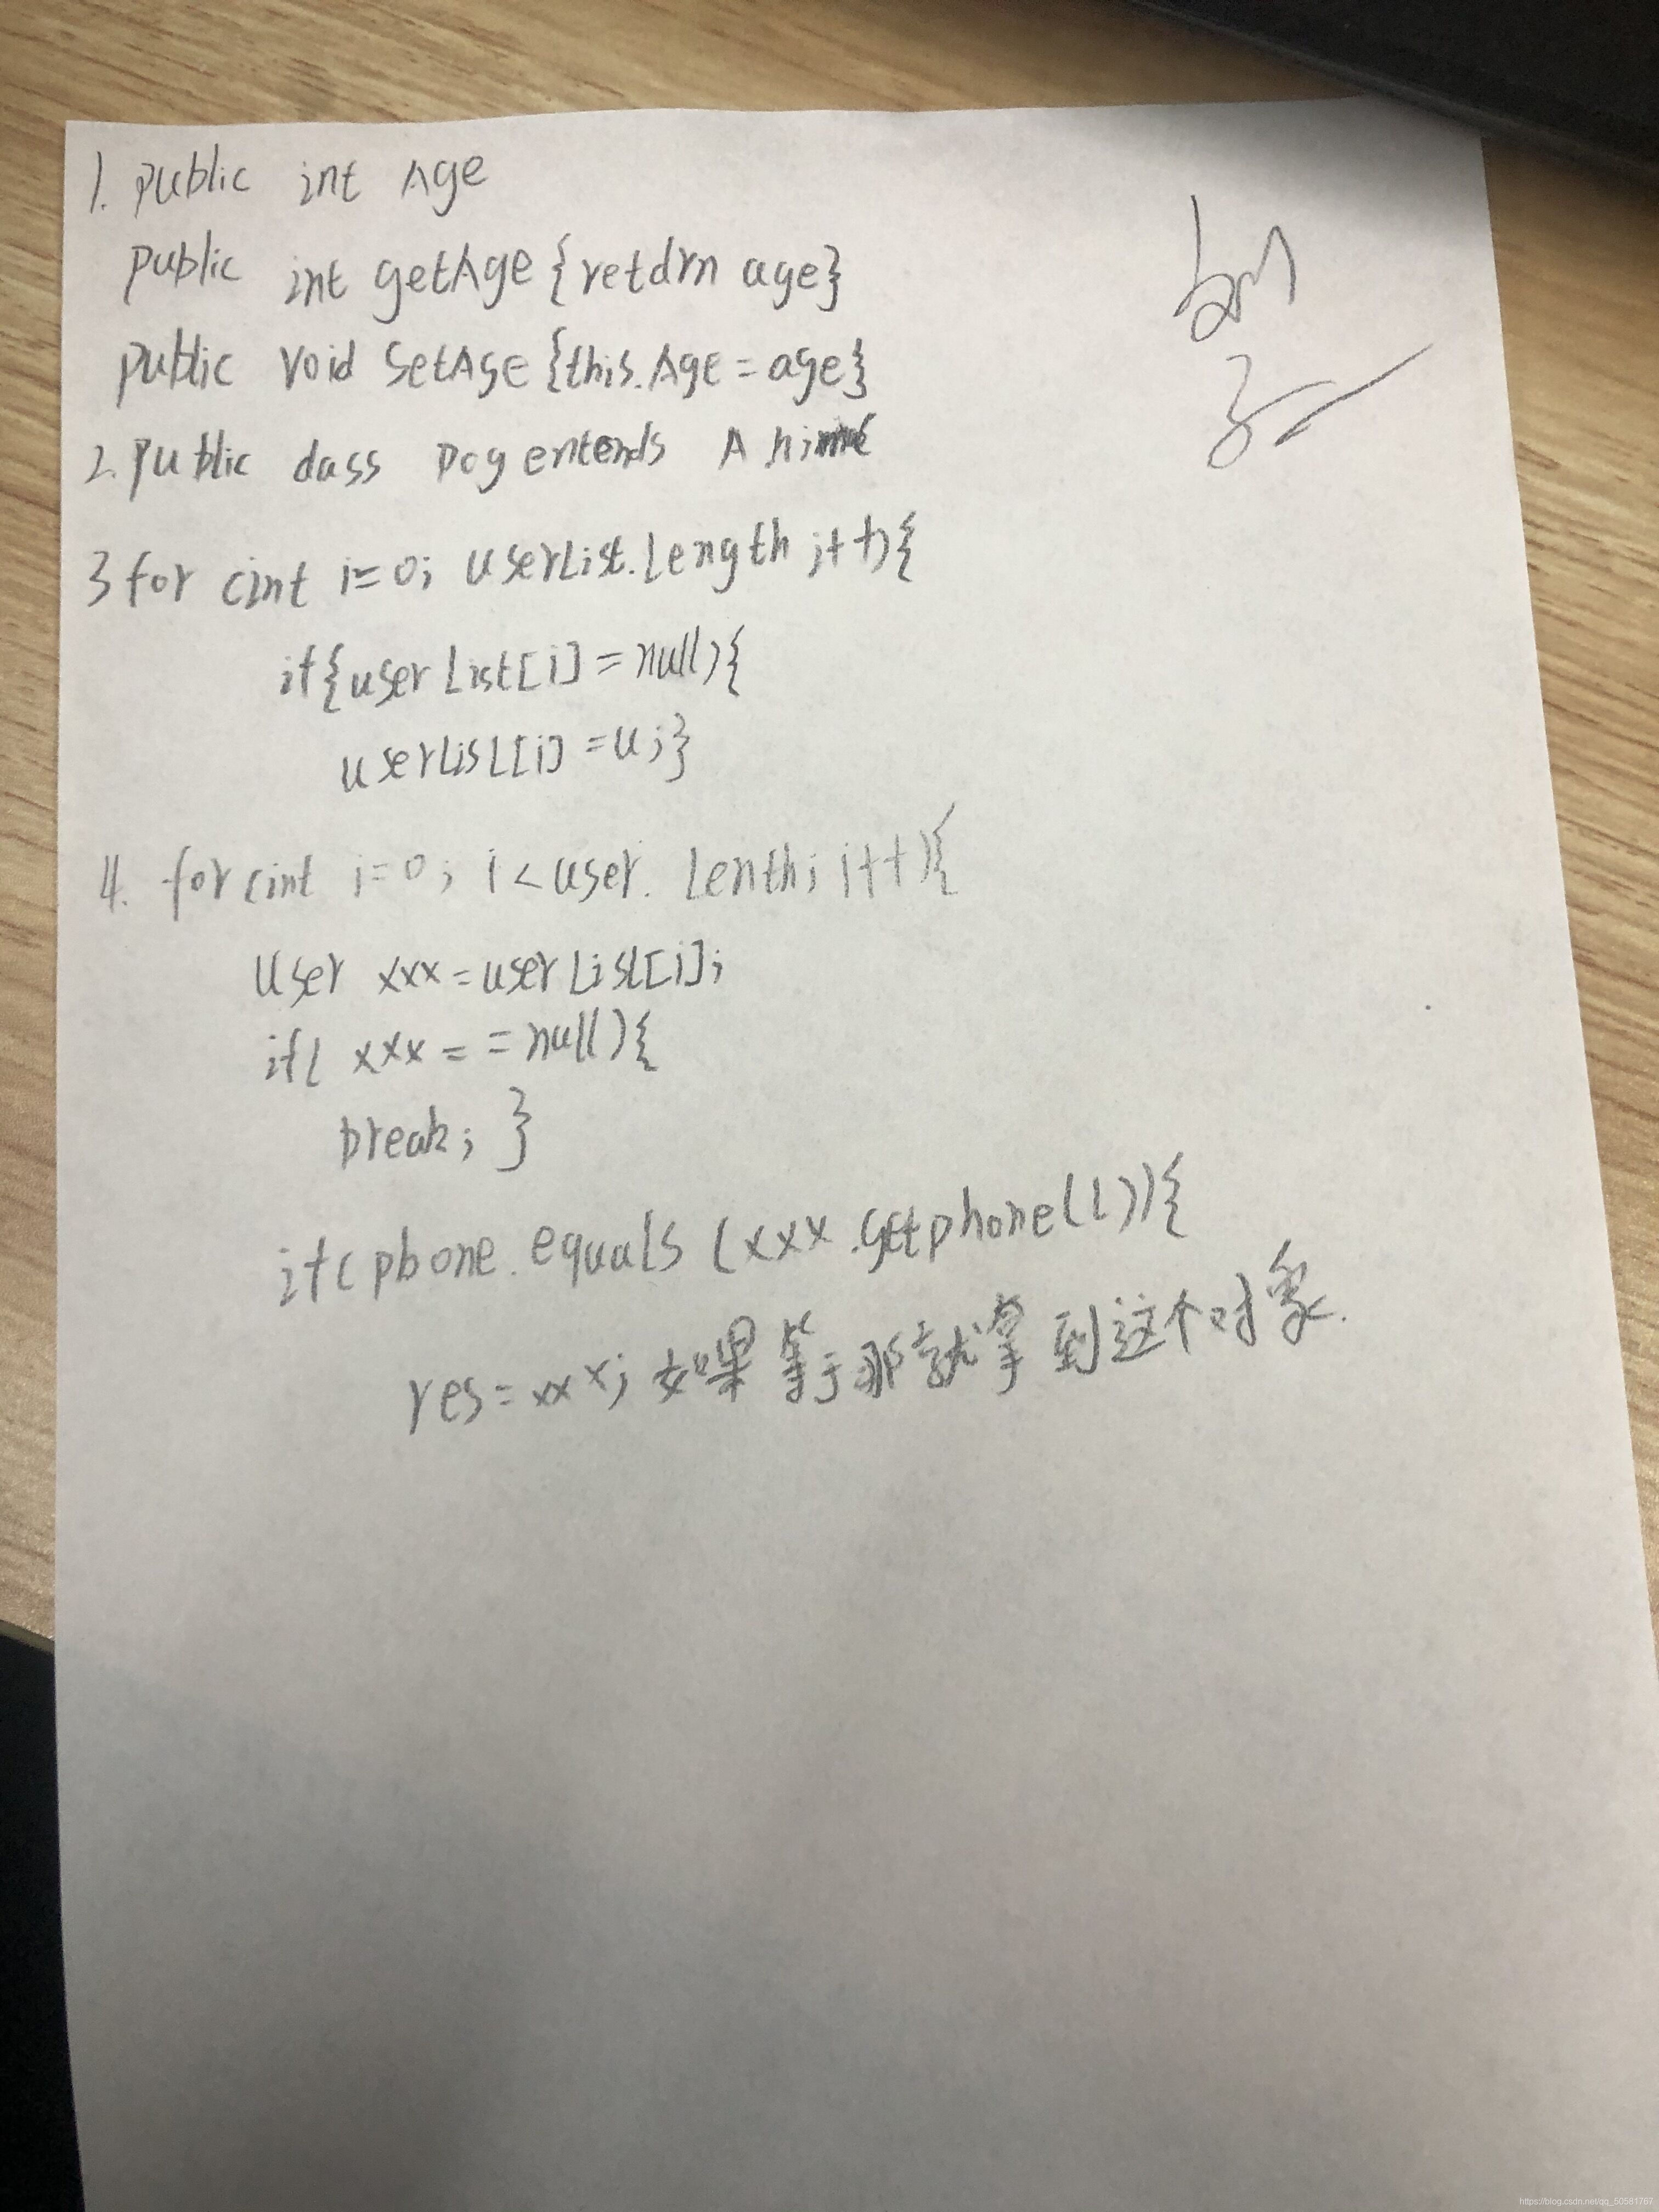 1. public int Age
public int getAge {retdrn age}
public void SetAge {this.Age = age}
2. public dass Dog entends
3 for cint i=0; userList.length ;i++){
if{userList[i] = null){
userList[i] = u;}
4. for cint i=0; i<user. Lenth; i++){
User xxx = userList[i];
if( xxx = = null){
break; }
if( pbone. equals (xxx.getphone(()){
res = xxx; 如果等于那就拿到这个对象.
https://blog.csdn.net/qq_50581767